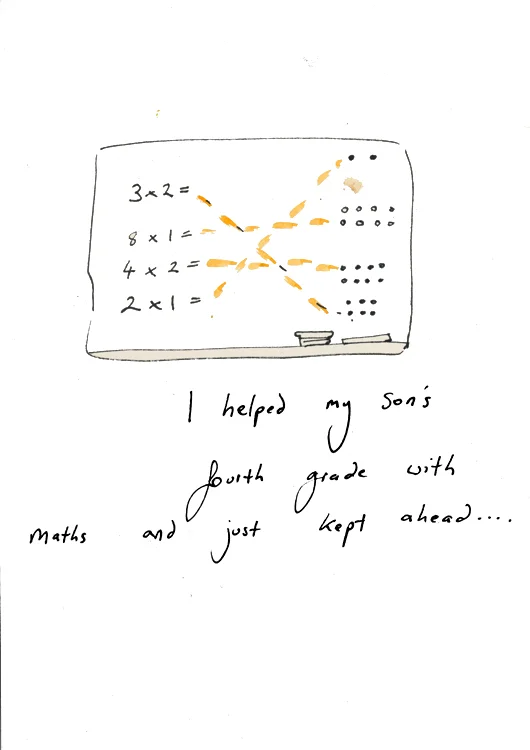 3 x 2 =
8 x 1 =
4 x 2 =
2 x 1 =
I helped my son's
fourth grade with
Maths and just kept ahead....